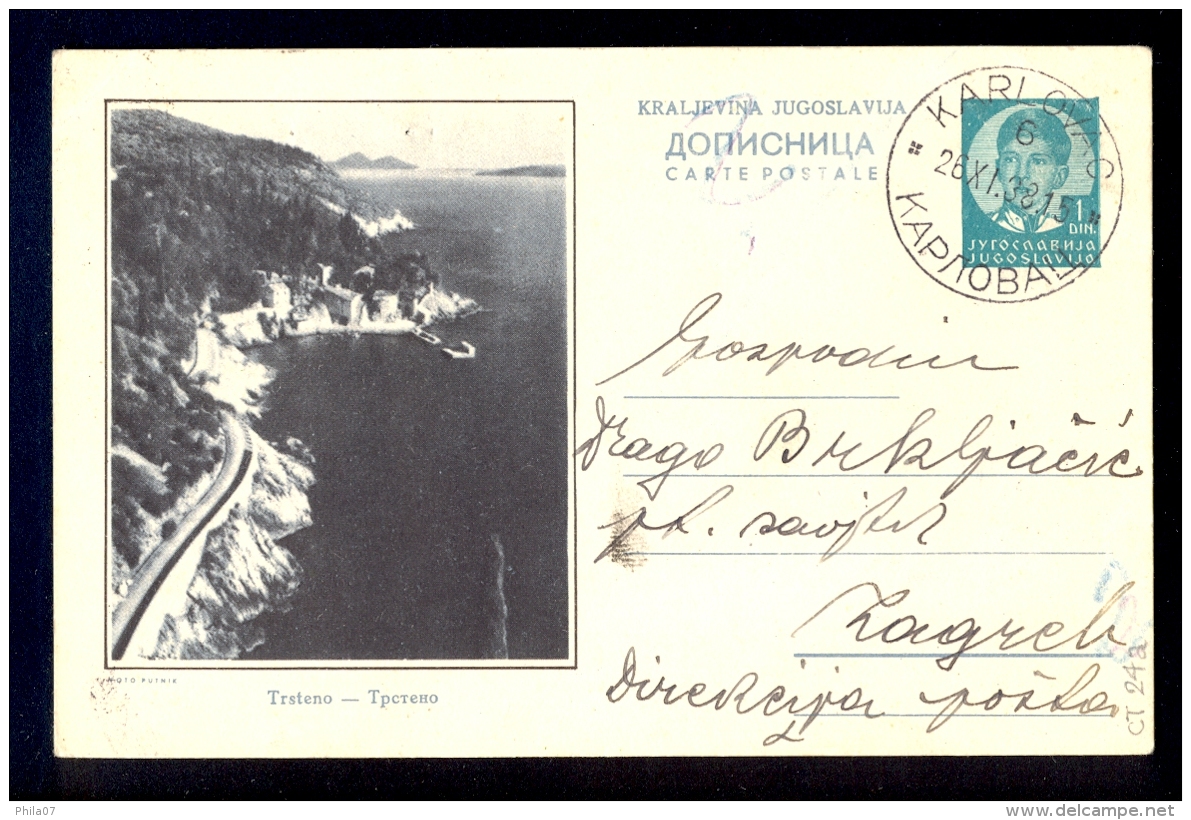 KRALJEVINA JUGOSLAVIJA
ДОПИСНИЦА
CARTE POSTALE
KARLOVAC
6
26.XI.38.15
КАРЛОВАЦ
1
DIN.
ЈУГОСЛАВИЈА
JUGOSLAVIJA
Gospodin
Drago Brkljačić
pt. savjtk
Zagreb
Direkcija pošta
FOTO PUTNIK
Trsteno — Трстено
CT 24a
Phila07
www.delcampe.net